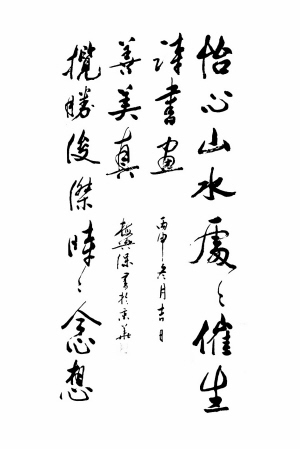 怡心山水處〻催生
詩書畫
丙申冬月吉日
攬勝俊傑時〻念想
善美真
書於京華